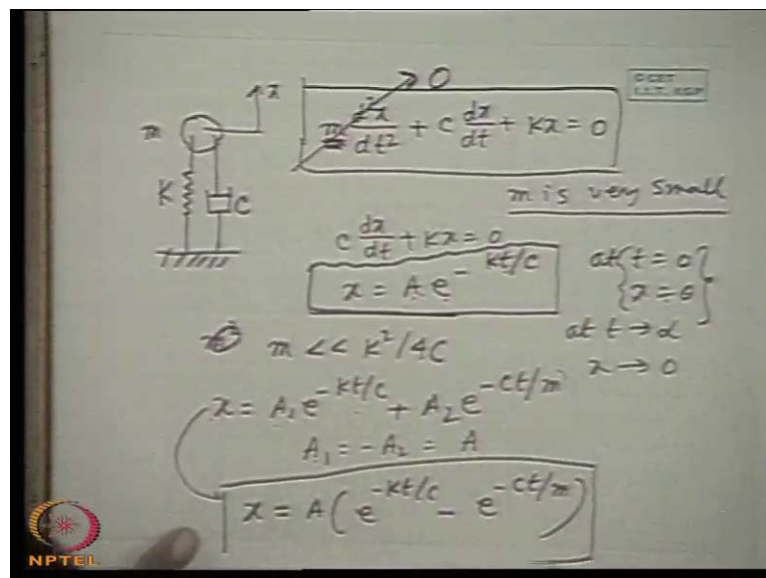 x
O
m
m d²x/dt² + C dx/dt + Kx = 0
K
C
m is very small
C dx/dt + Kx = 0
x = A e^- kt/c
at t = 0
x = 0
at t → α
x → 0
m << K²/4C
x = A₁e^-kt/c + A₂e^-ct/m
A₁ = -A₂ = A
x = A(e^-kt/c - e^-ct/m)
NPTEL